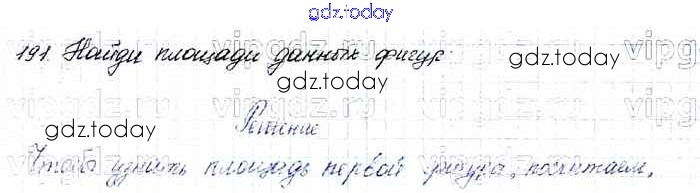 gdz.today
191. Найди площади данных фигур.
gdz.today
gdz.today
gdz.today
Решение
Чтобы узнать площадь первой фигуры, посчитаем,